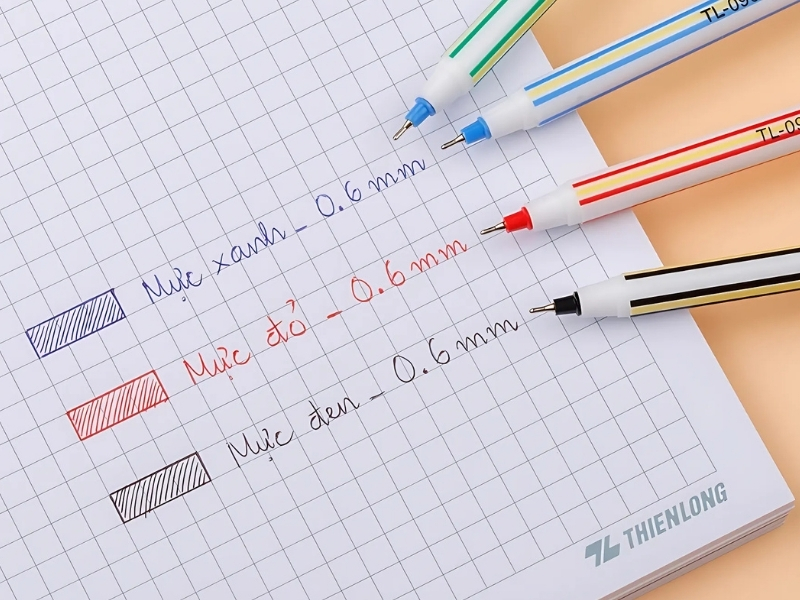 TL-09
TL-09
Mực xanh - 0.6 mm
Mực đỏ - 0.6 mm
Mực đen - 0.6 mm
TL THIENLONG